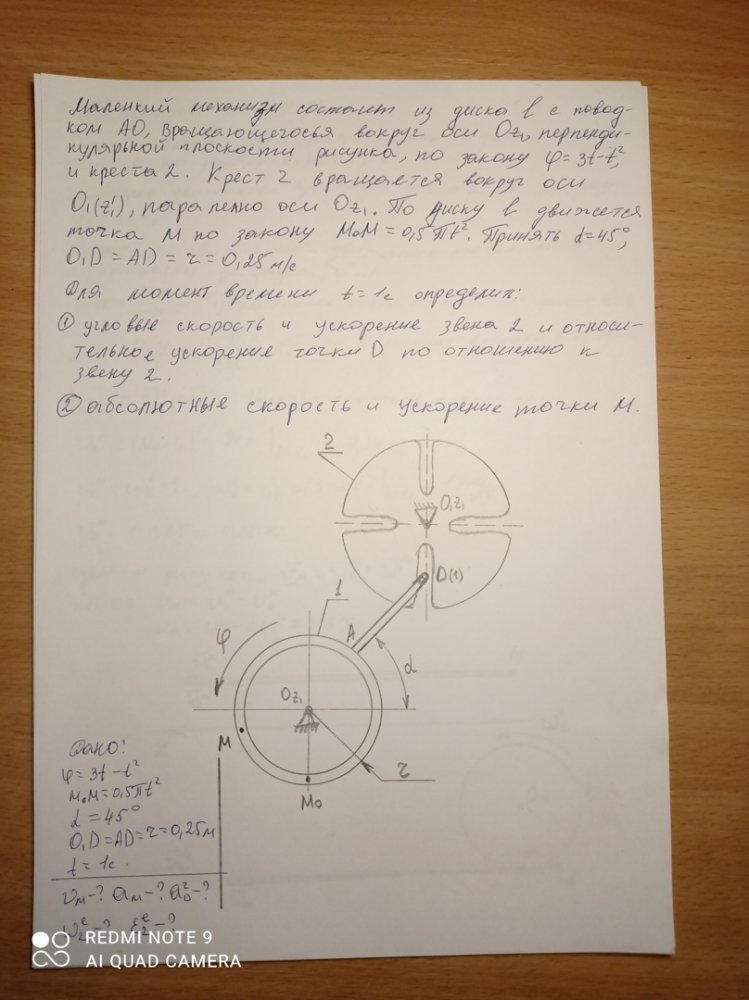 Маленкий механизм состоит из диска 1 с повод-
ком АО, вращающегосья вокруг оси Oz₁, перпенди-
кулярьной плоскости рисунка, по закону φ=3t-t²,
и креста 2. Крест 2 вращается вокруг оси
O₁(z₁'), паралелно оси Oz₁. По диску в движется
точка М по закону M₀M=0,5πt². Принять α=45°,
O₁D=AD=r=0,25 м/с
Для момент времени t=1c определит:
① угловые скорость и ускорение звена 2 и относи-
тельное ускорение точки D по отношению к
звену 2.
② абсолютные скорость и ускорение точки М.
2
O₁z₁
D(1)
1
A
φ
α
Oz₁
M
r
M₀
Дано:
φ=3t-t²
M₀M=0,5πt²
α=45°
O₁D=AD=r=0,25м
t=1c.
REDMI NOTE 9
AI QUAD CAMERA